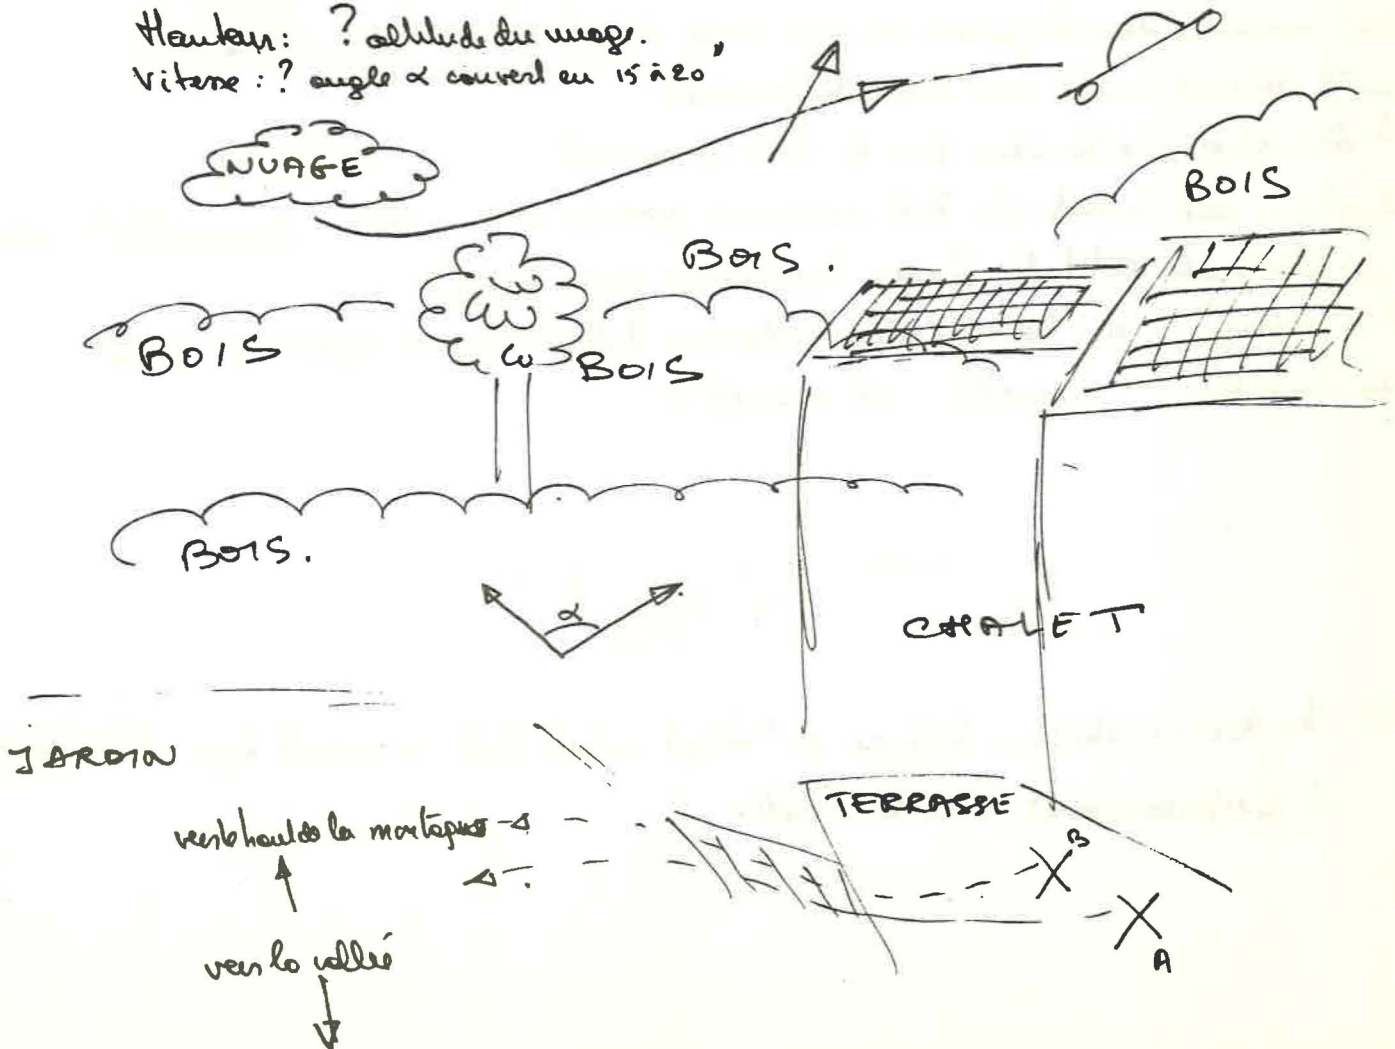 Hauteur: ? altitude du nuage.
Vitesse: ? angle α couvert en 15 à 20"
NUAGE
BOIS
BOIS.
BOIS
BOIS
BOIS.
α
CHALET
JARDIN
TERRASSE
vers le haut de la montagne
B
A
vers la vallée